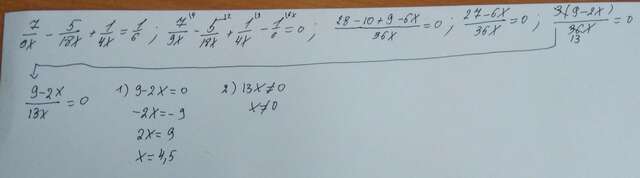 7/9x - 5/18x + 1/4x = 1/6 ; 7/9x - 5/18x + 1/4x - 1/6 = 0 ; 28-10+9-6x/36x = 0 ; 27-6x/36x = 0 ; 3(9-2x)/36x = 0
13
9-2x/13x = 0 1) 9-2x=0 2) 13x≠0
-2x=-9 x≠0
2x=9
x=4,5